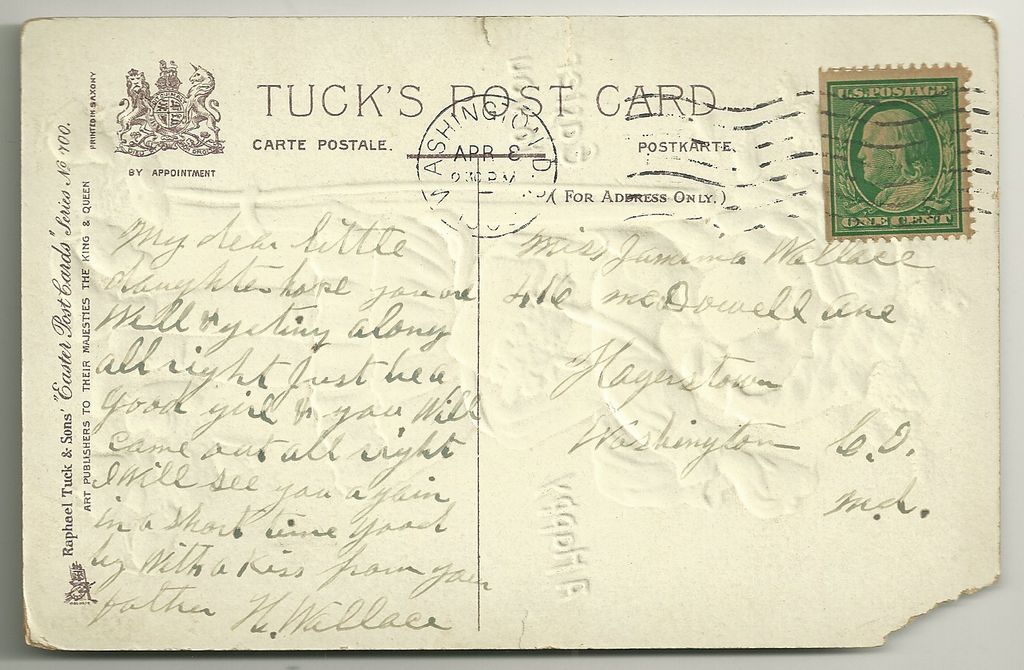 TUCK'S POST CARD
CARTE POSTALE.
POSTKARTE.
BY APPOINTMENT
(FOR ADDRESS ONLY.)
PRINTED IN SAXONY
Raphael Tuck & Sons' "Easter Post Cards" Series No 700.
ART PUBLISHERS TO THEIR MAJESTIES THE KING & QUEEN
WASHINGTON, D
APR 8
2 30 PM
U.S. POSTAGE
ONE CENT
My dear little
daughter hope you are
Well & getting along
all right Just be a
good girl & you Will
come out all right
I Will see you again
in a short time good
by With a Kiss from your
father H. Wallace
Miss Jamima Wallace
416 McDowell ave
Hagerstown
Washington C.O.
Md.
A Happy
Easter